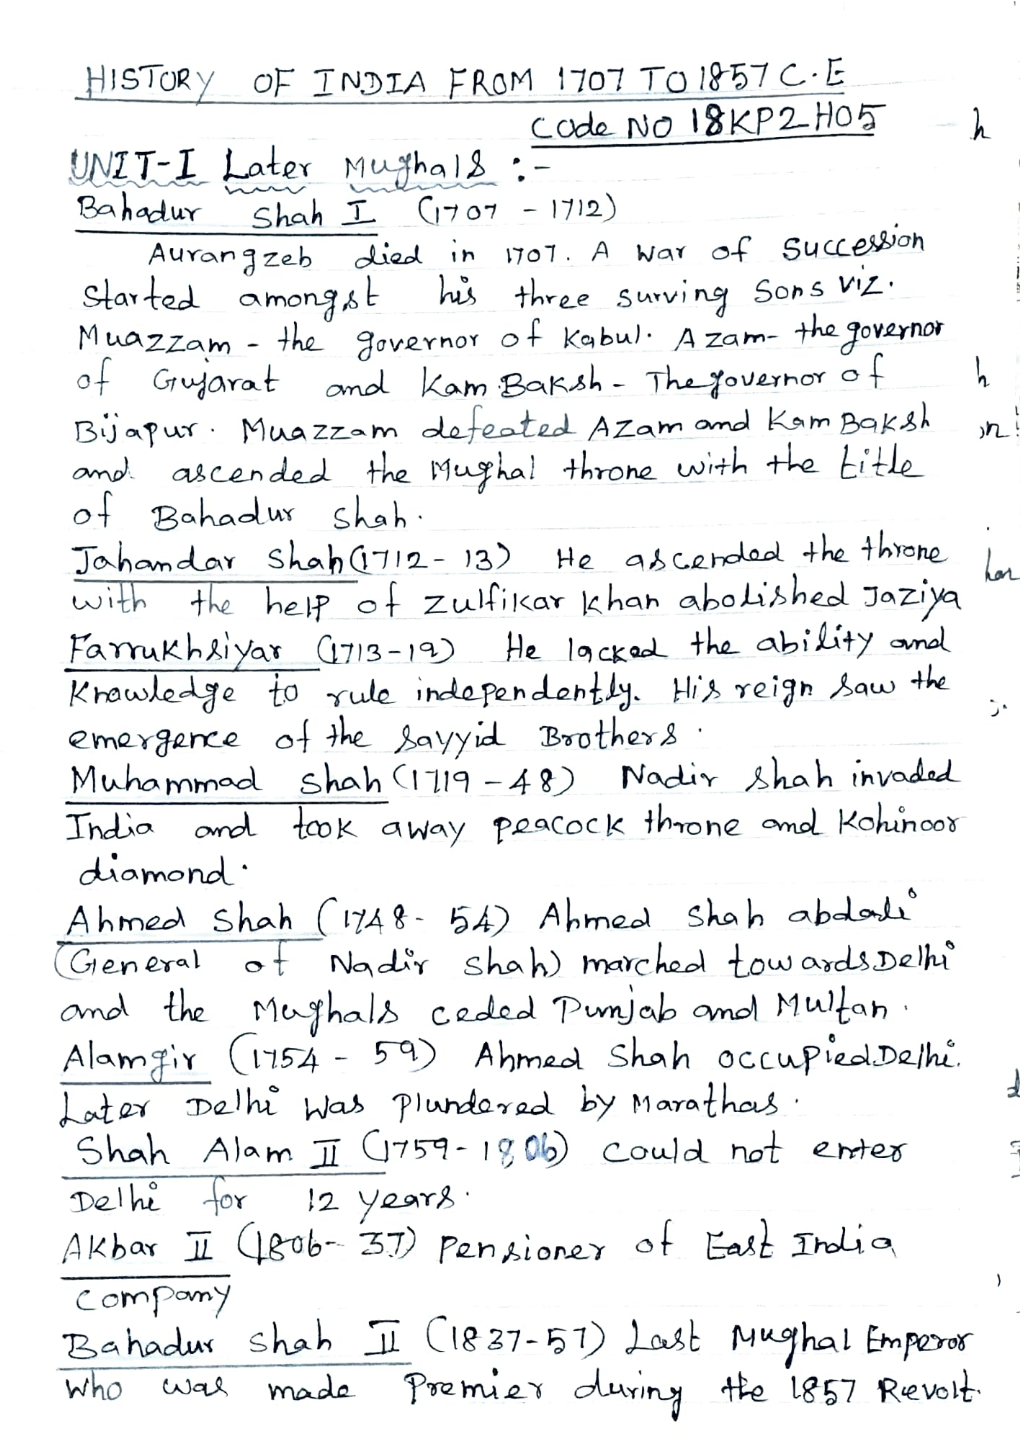 HISTORY OF INDIA FROM 1707 TO 1857 C.E
Code NO 18KP2HO5
UNIT-I Later Mughals :-
Bahadur Shah I (1707 - 1712)
Aurangzeb died in 1707. A war of Succession
Started amongst his three surving Sons viz.
Muazzam - the governor of Kabul. Azam- the governor
of Gujarat and Kam Baksh - The governor of
Bijapur. Muazzam defeated Azam and Kam Baksh
and ascended the Mughal throne with the title
of Bahadur Shah.
Jahandar Shah (1712 - 13) He ascended the throne
with the help of Zulfikar Khan abolished Jaziya
Farrukhsiyar (1713-19) He lacked the ability and
Knowledge to rule independently. His reign saw the
emergence of the Sayyid Brothers.
Muhammad Shah (1719 - 48) Nadir Shah invaded
India and took away peacock throne and Kohinoor
diamond.
Ahmed Shah (1748 - 54) Ahmed Shah abdali
(General of Nadir Shah) marched towards Delhi
and the Mughals ceded Punjab and Multan.
Alamgir (1754 - 59) Ahmed Shah occupied Delhi.
Later Delhi was plundered by Marathas.
Shah Alam II (1759-1806) could not enter
Delhi for 12 years.
Akbar II (1806- 37) Pensioner of East India
Company
Bahadur Shah II (1837-57) Last Mughal Emperor
Who was made Premier during the 1857 Revolt.